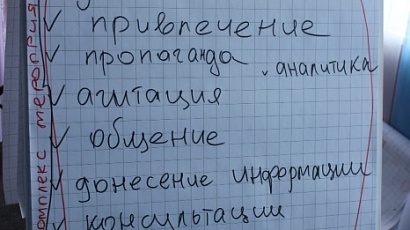 ✓ привлечение
✓ пропаганда
✓ аналитика
✓ агитация
✓ общение
✓ донесение информации
✓ консультации
комплекс мероприя